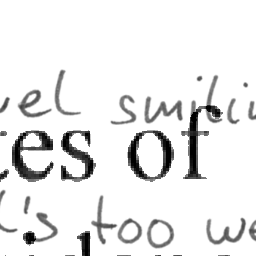 vel smilin
tes of
's too we